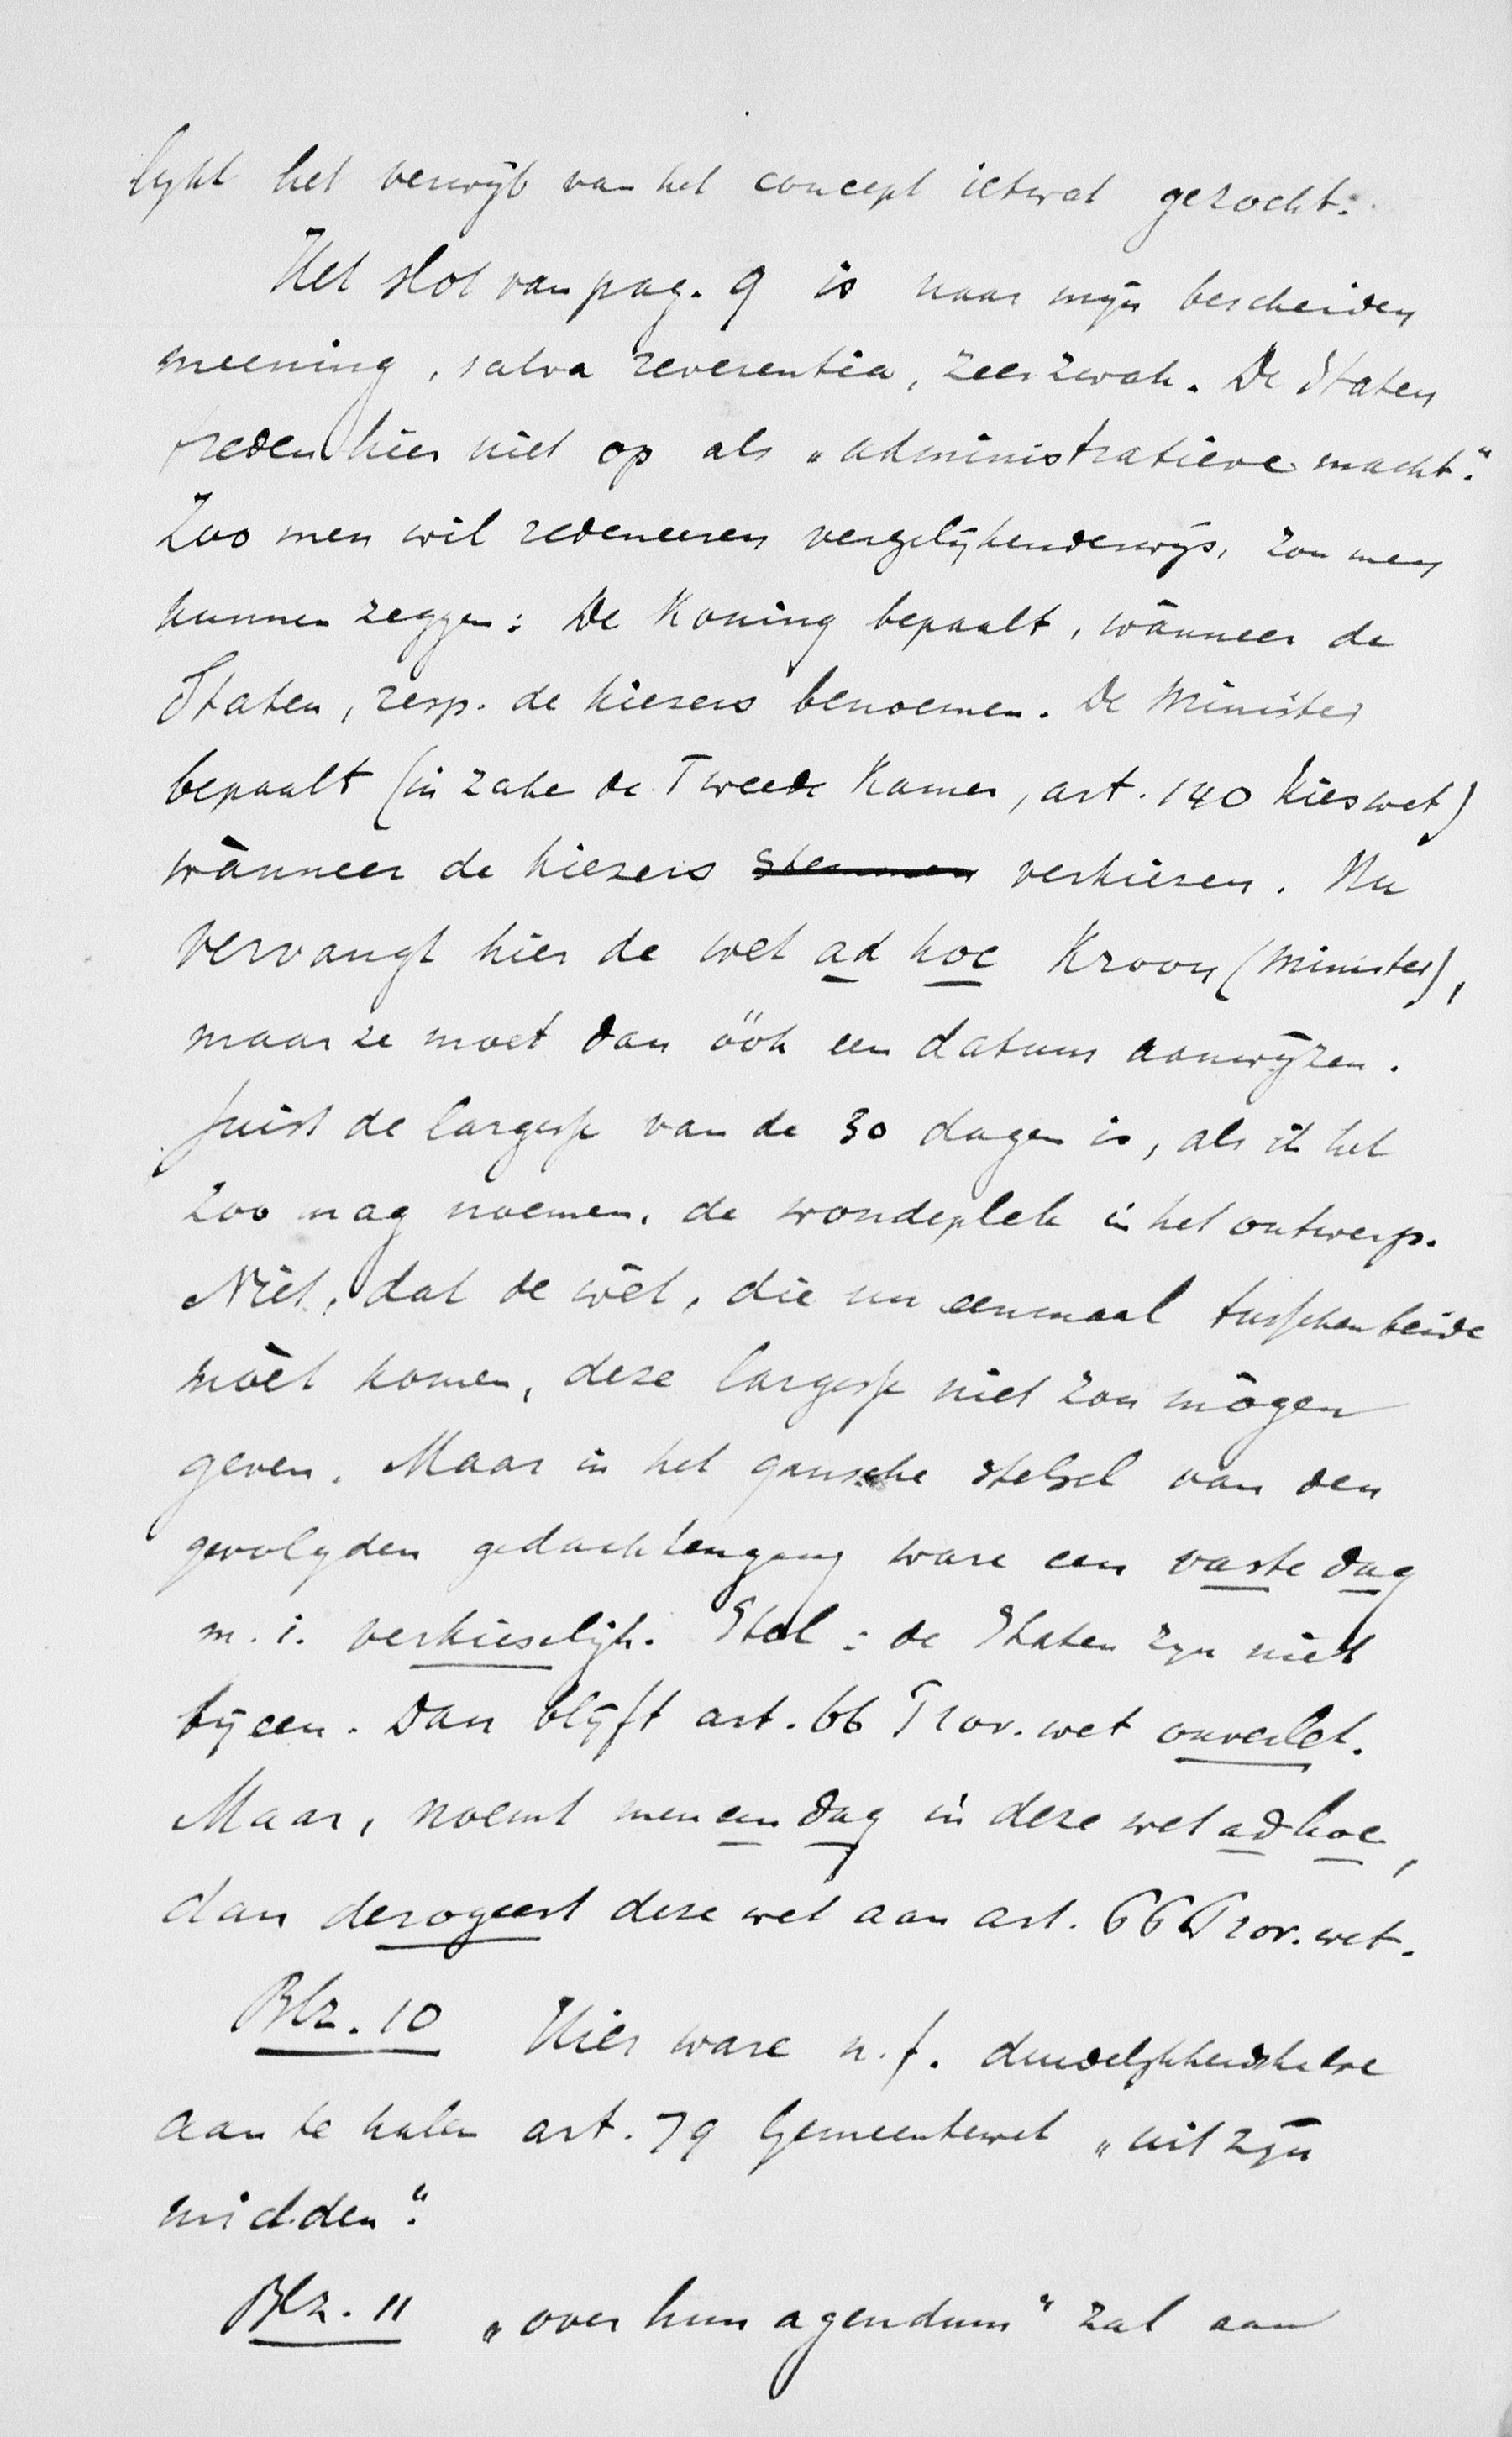 lijkt het verwijt van het concept ietwat gezocht.
Het slot van pag. 9 is naar mijn bescheiden
meening, salva reverentia, zeer zwak. De Staten
treden hier niet op als „administratieve macht".
Zoo men wil redeneeren vergelijkenderwijs, zou men
kunnen zeggen: De Koning bepaalt, wànneer de
Staten, resp. de kiezers benoemen. De Minister
bepaalt (in zake de Tweede Kamer, art. 140 Kieswet)
wànneer de kiezers stemmen verkiezen. Nu
vervangt hier de wet ad hoc Kroon (Minister),
maar ze moet dan óók een datum aanwijzen.
Juist de largesse van de 30 dagen is, als ik het
zoo mag noemen, de wondeplek in het ontwerp.
Niet, dat de wèt, die nu eenmaal tusschenbeide
mòet komen, deze largesse niet zou mògen
geven. Maar in het gansche stelsel van den
gevolgden gedachtengang ware een vaste dag
m. i. verkieselijk. Stel: de Staten zijn niet
bijeen. Dan blijft art. 66 Prov. wet onverlet.
Maar, noemt men een dag in deze wet ad hoc,
dan derogeert deze wet aan art. 66 Prov. wet.
Blz. 10 Hier ware n. f. duidelijkheidshalve
aan te halen art. 79 Gemeentewet „uit zijn
midden".
Blz. 11 „over hun agendum" zal aan